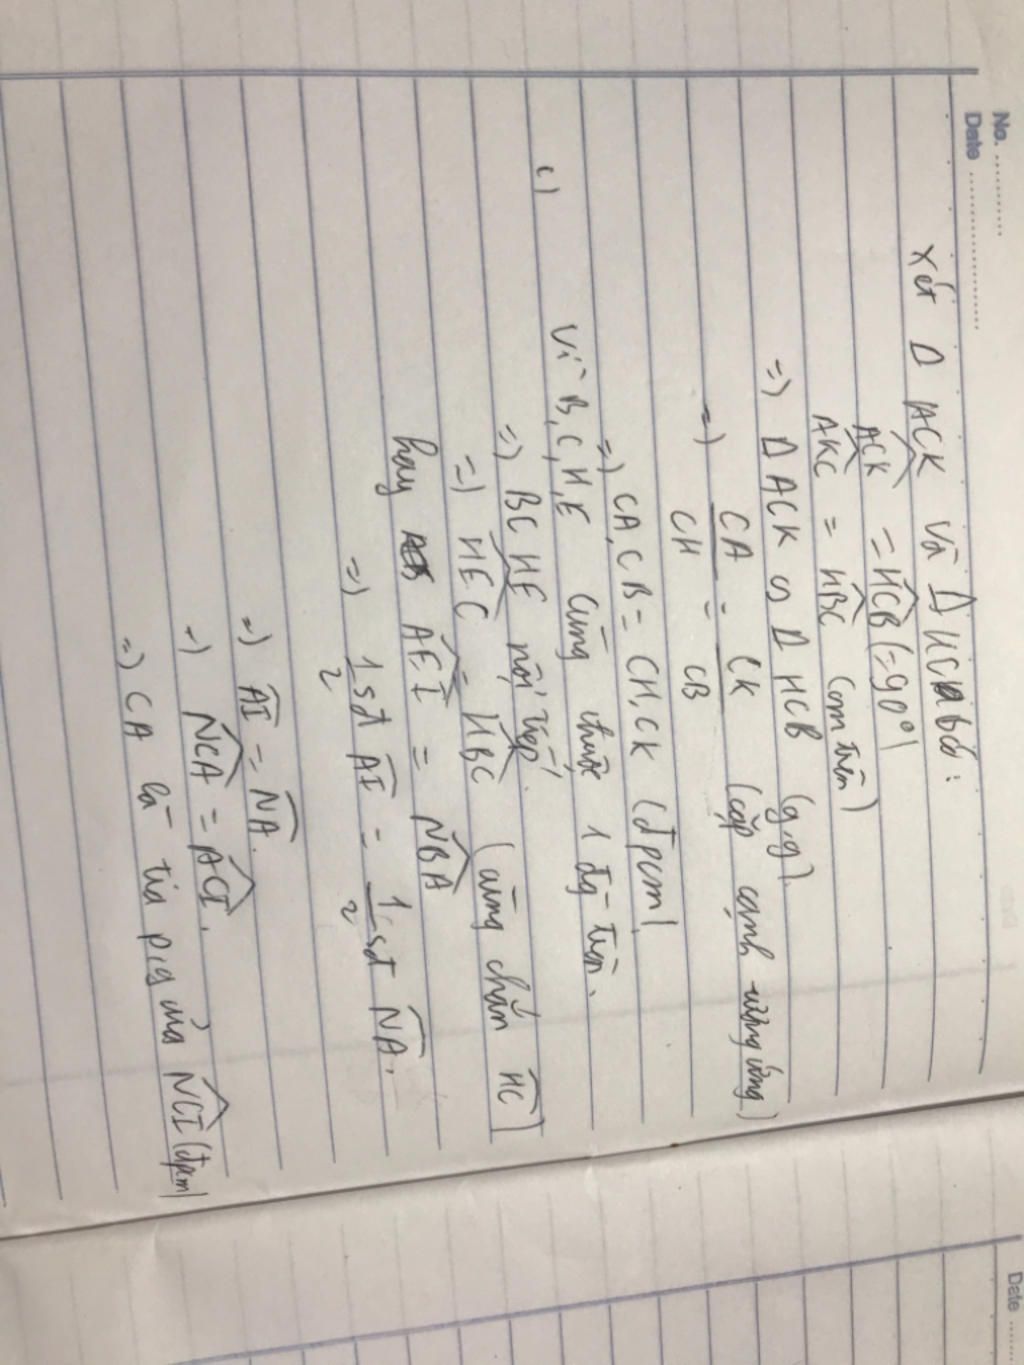 No. ............
Date ........................
Xét Δ ACK và Δ HCB có:
ACK = HCB (=90°)
AKC = HBC (cm trên)
=) Δ ACK ∽ Δ HCB (g.g).
=) CA/CH = CK/CB (cặp cạnh tương ứng)
=) CA.CB = CH.CK (đpcm)
c) Vì B,C,H,E cùng thuộc 1 đg tròn.
=) BCHE nội tiếp.
=) HEC = HBC (cùng chắn HC)
hay AEI = NBA
=) 1/2 sđ AI = 1/2 sđ NA.
=) AI = NA.
=) NCA = ACI.
=) CA là tia p/g của NCI (đpcm)
Date ......